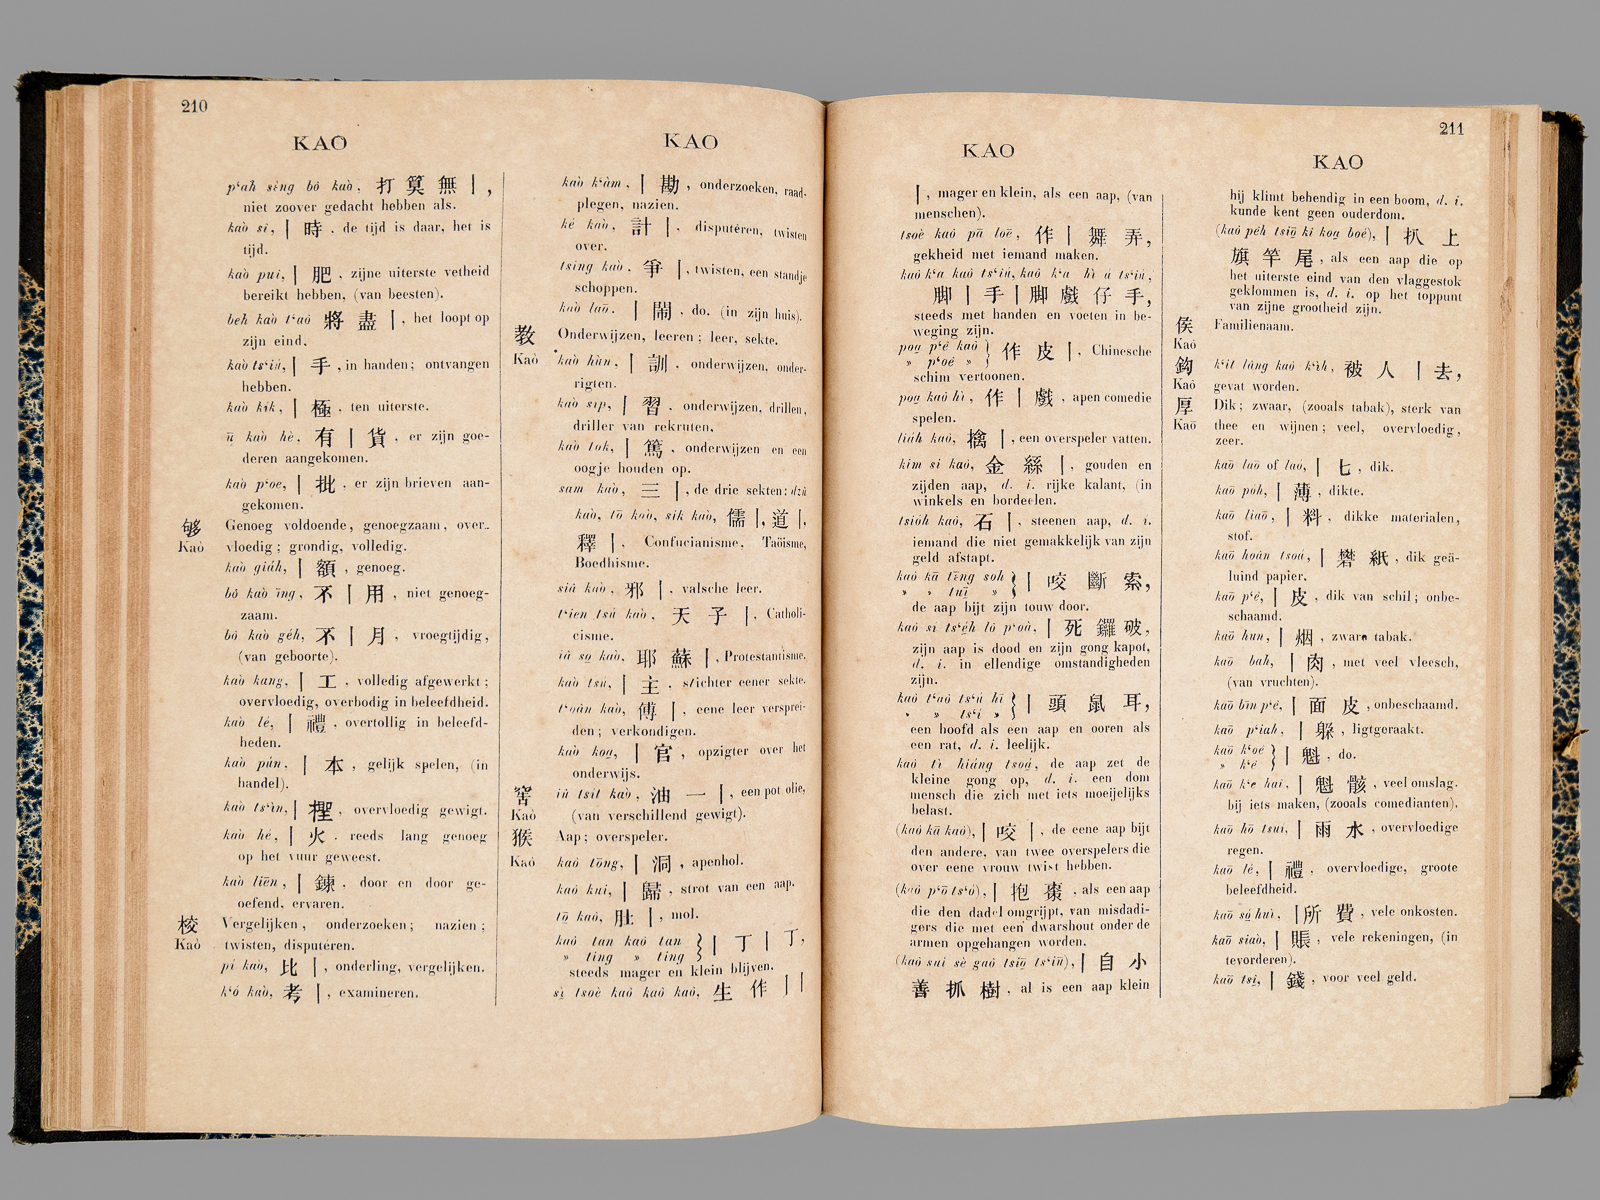 210
KAO
pʻah sèng bô kaò, 打 算 無 |,
niet zoover gedacht hebben als.
kaò sî, | 時, de tijd is daar, het is
tijd.
kaò pui, | 肥, zijne uiterste vetheid
bereikt hebben, (van beesten).
beh kaò tʻaô 將 盡 |, het loopt op
zijn eind.
kaò tsʻiú, | 手, in handen; ontvangen
hebben.
kaò kik, | 極, ten uiterste.
ū kaò hè, 有 | 貨, er zijn goe-
deren aangekomen.
kaò pʻoe, | 批, er zijn brieven aan-
gekomen.
够 Genoeg voldoende, genoegzaam, over-
Kaò vloedig; grondig, volledig.
kaò giáh, | 額, genoeg.
bô kaò īng, 不 | 用, niet genoeg-
zaam.
bô kaò géh, 不 | 月, vroegtijdig,
(van geboorte).
kaò kang, | 工, volledig afgewerkt;
overvloedig, overbodig in beleefdheid.
kaò lé, | 禮, overtollig in beleefd-
heden.
kaò pún, | 本, gelijk spelen, (in
handel).
kaò tsʻìn, |, overvloedig gewigt.
kaò hé, | 火, reeds lang genoeg
op het vuur geweest.
kaò liēn, | 鍊, door en door ge-
oefend, ervaren.
校 Vergelijken, onderzoeken; nazien;
Kaò twisten, disputéren.
pí kaò, 比 |, onderling, vergelijken.
kʻó kaò, 考 |, examineren.
KAO
kaò kʻàm, | 勘, onderzoeken, raad-
plegen, nazien.
ké kaò, 計 |, disputéren, twisten
over.
tsing kaò, 爭 |, twisten, een standje
schoppen.
kaò laō, | 鬧, do. (in zijn huis).
教 Onderwijzen, leeren; leer, sekte.
Kaò kaò hùn, | 訓, onderwijzen, onder-
rigten.
kaò sip, | 習, onderwijzen, drillen,
driller van rekruten.
kaò tok, | 篤, onderwijzen en een
oogje houden op.
sam kaò, 三 |, de drie sekten; dzû
kaò, tō kaò, sik kaò, 儒 |, 道 |,
釋 |, Confucianisme, Taöisme,
Boedhisme.
siâ kaò, 邪 |, valsche leer.
tʻien tsú kaò, 天 子 |, Catholi-
cisme.
iâ so kaò, 耶 蘇 |, Protestantisme.
kaò tsú, | 主, stichter eener sekte.
tʻoân kaò, 傳 |, eene leer versprei-
den; verkondigen.
kaò koa, | 官, opzigter over het
onderwijs.
窖 iû tsit kaò, 油 一 |, een pot olie,
Kaò (van verschillend gewigt).
猴 Aap; overspeler.
Kaô kaô tōng, | 洞, apenhol.
kaô kui, | 歸, strot van een aap.
tō kaô, 肚 |, mol.
kaô tan kaô tan } | 丁 | 丁,
» ting » ting
steeds mager en klein blijven.
sì tsoè kaô kaô kaô, 生 作 | |
211
KAO
|, mager en klein, als een aap, (van
menschen).
tsoè kaô pū loē, 作 | 舞 弄,
gekheid met iemand maken.
kaô kʻa kaô tsʻiú, kaô kʻa hì á tsʻiú,
脚 | 手 | 脚 戲 仔 手,
steeds met handen en voeten in be-
weging zijn.
poa pʻê kaô } 作 皮 |, Chinesche
» pʻoê »
schim vertoonen.
poa kaô hì, 作 | 戲, apen comedie
spelen.
liáh kaô, 擒 |, een overspeler vatten.
kim si kaô, 金 絲 |, gouden en
zijden aap, d. i. rijke kalant, (in
winkels en bordeelen.
tsióh kaô, 石 |, steenen aap, d. i.
iemand die niet gemakkelijk van zijn
geld afstapt.
kaô kā tēng soh } | 咬 斷 索,
» » tuī »
de aap bijt zijn touw door.
kaô sí tsʻéh lô pʻoà, | 死 鑼 破,
zijn aap is dood en zijn gong kapot,
d. i. in ellendige omstandigheden
zijn.
kaô tʻaô tsʻú hī } | 頭 鼠 耳,
» » tsʻí »
een hoofd als een aap en ooren als
een rat, d. i. leelijk.
kaô tì hiáng tsoá, de aap zet de
kleine gong op, d. i. een dom
mensch die zich met iets moeijelijks
belast.
(kaô kā kaô), | 咬 |, de eene aap bijt
den andere, van twee overspelers die
over eene vrouw twist hebben.
(kaô pʻō tsʻò), | 抱 棗, als een aap
die den dadel omgrijpt, van misdadi-
gers die met een dwarshout onder de
armen opgehangen worden.
(kaô sui sè gaô tsiō tsʻiū), | 自 小
善 抓 樹, al is een aap klein
KAO
hij klimt behendig in een boom, d. i.
kunde kent geen ouderdom.
(kaô péh tsiō kî koa boé), | 扒 上
旗 竿 尾, als een aap die op
het uiterste eind van den vlaggestok
geklommen is, d. i. op het toppunt
van zijne grootheid zijn.
侯 Familienaam.
Kaô
鈎 kʻit láng kaô kʻih, 被 人 | 去,
Kaô gevat worden.
厚 Dik; zwaar, (zooals tabak), sterk van
Kaō thee en wijnen; veel, overvloedig,
zeer.
kaō laō of laó, |, dik.
kaō póh, | 薄, dikte.
kaō liaō, | 料, dikke materialen,
stof.
kaō hoân tsoá, | 礬 紙, dik geä-
luind papier.
kaō pʻê, | 皮, dik van schil; onbe-
schaamd.
kaō hun, | 烟, zware tabak.
kaō bah, | 肉, met veel vleesch,
(van vruchten).
kaō bīn pʻê, | 面 皮, onbeschaamd.
kaō pʻiah, |, ligtgeraakt.
kaō kʻoe } | 魁, do.
» kʻe
kaō kʻe hai, | 魁 骸, veel omslag.
bij iets maken, (zooals comedianten).
kaō hō tsui, | 雨 水, overvloedige
regen.
kaō lé, | 禮, overvloedige, groote
beleefdheid.
kaō só huì, | 所 費, vele onkosten.
kaō siaò, | 賬, vele rekeningen, (in
tevorderen).
kaō tsí, | 錢, voor veel geld.